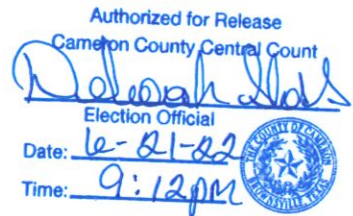 Authorized for Release
Cameron County Central Count
Election Official
Date: 6-21-22
Time: 9:12pm
THE COUNTY OF CAMERON
BROWNSVILLE, TEXAS